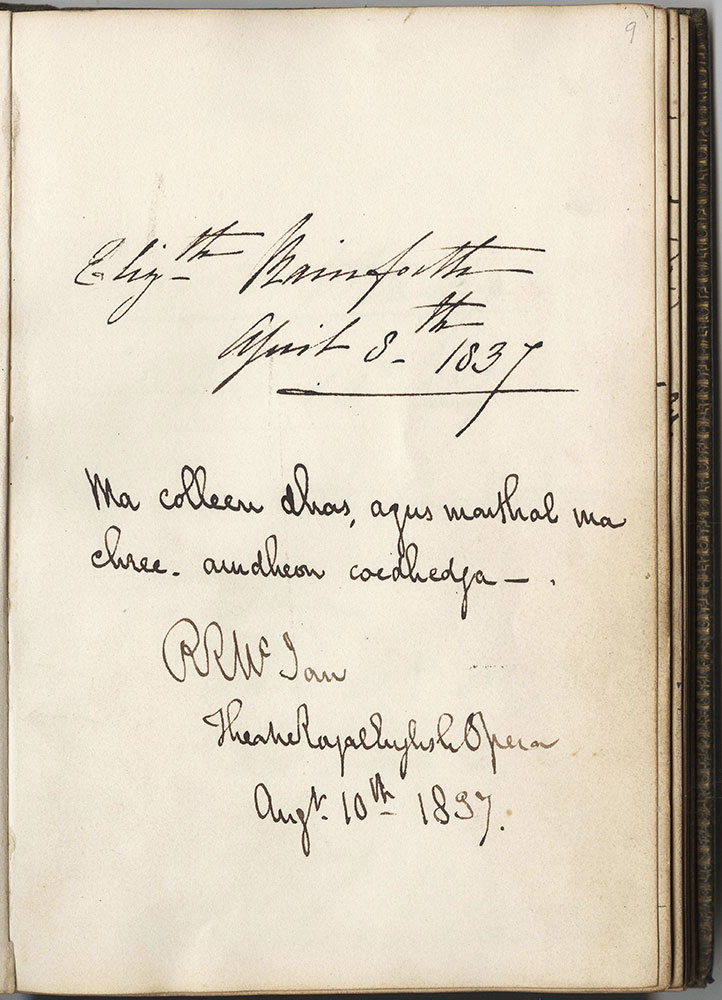 9
Elizth Rainforth
April 8th 1837
Ma colleen dhas, agus marthal ma
chree. auudheon coedhedga – .
RR Mc Ian
Theatre Royal English Opera
Augt. 10th 1837.